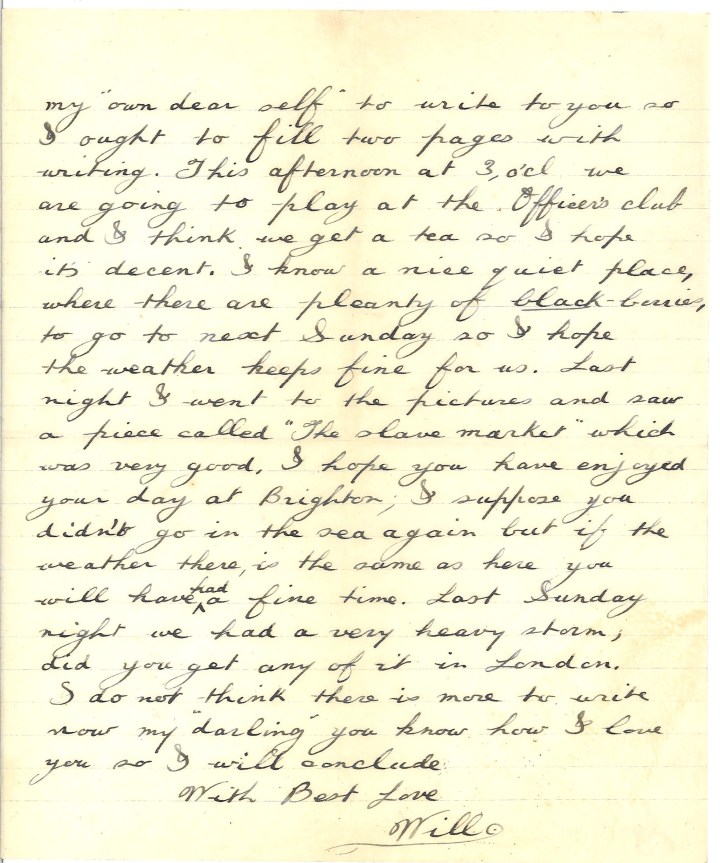 my "own dear self" to write to you so
I ought to fill two pages with
writing. This afternoon at 3, o'cl we
are going to play at the Officer's club
and I think we get a tea so I hope
its decent. I know a nice quiet place,
where there are pleanty of black-berries,
to go to next Sunday so I hope
the weather keeps fine for us. Last
night I went to the pictures and saw
a piece called "The slave market" which
was very good. I hope you have enjoyed
your day at Brighton; I suppose you
didn't go in the sea again but if the
weather there, is the same as here you
will have had a fine time. Last Sunday
night we had a very heavy storm;
did you get any of it in London.
I do not think there is more to write
now my "darling" you know how I love
you so I will conclude
With Best Love
Will